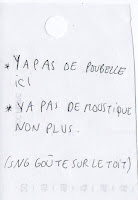 * Y A PAS DE POUBELLE
ici
* Y A PAS DE MOUSTIQUE
NON PLUS.
(SNG GOÛTE SUR LE TOIT)